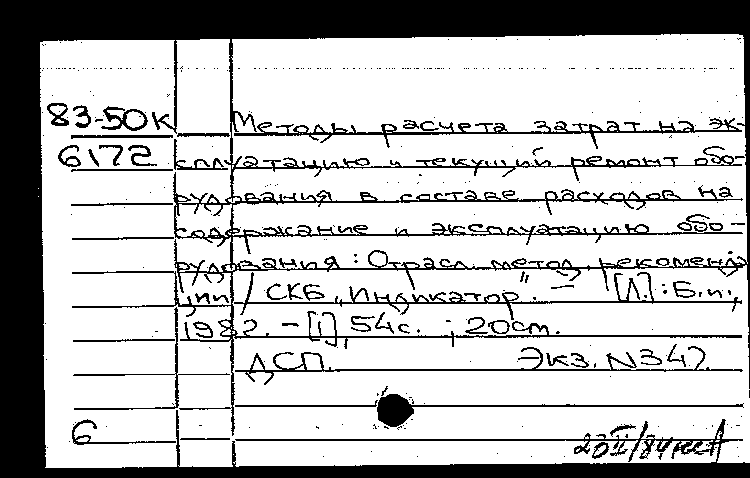 83-50к Методы расчета затрат на эк-
6172 сплуатацию и текущий ремонт обо-
рудования в составе расходов на
содержание и эксплуатацию обо-
рудования: Отрасл. метод. рекоменда-
ции / СКБ „Индикатор". — [Л.]: Б.и.,
1982. - [1], 54с. ; 20см.
ДСП. Экз. N347.
6
23II/84